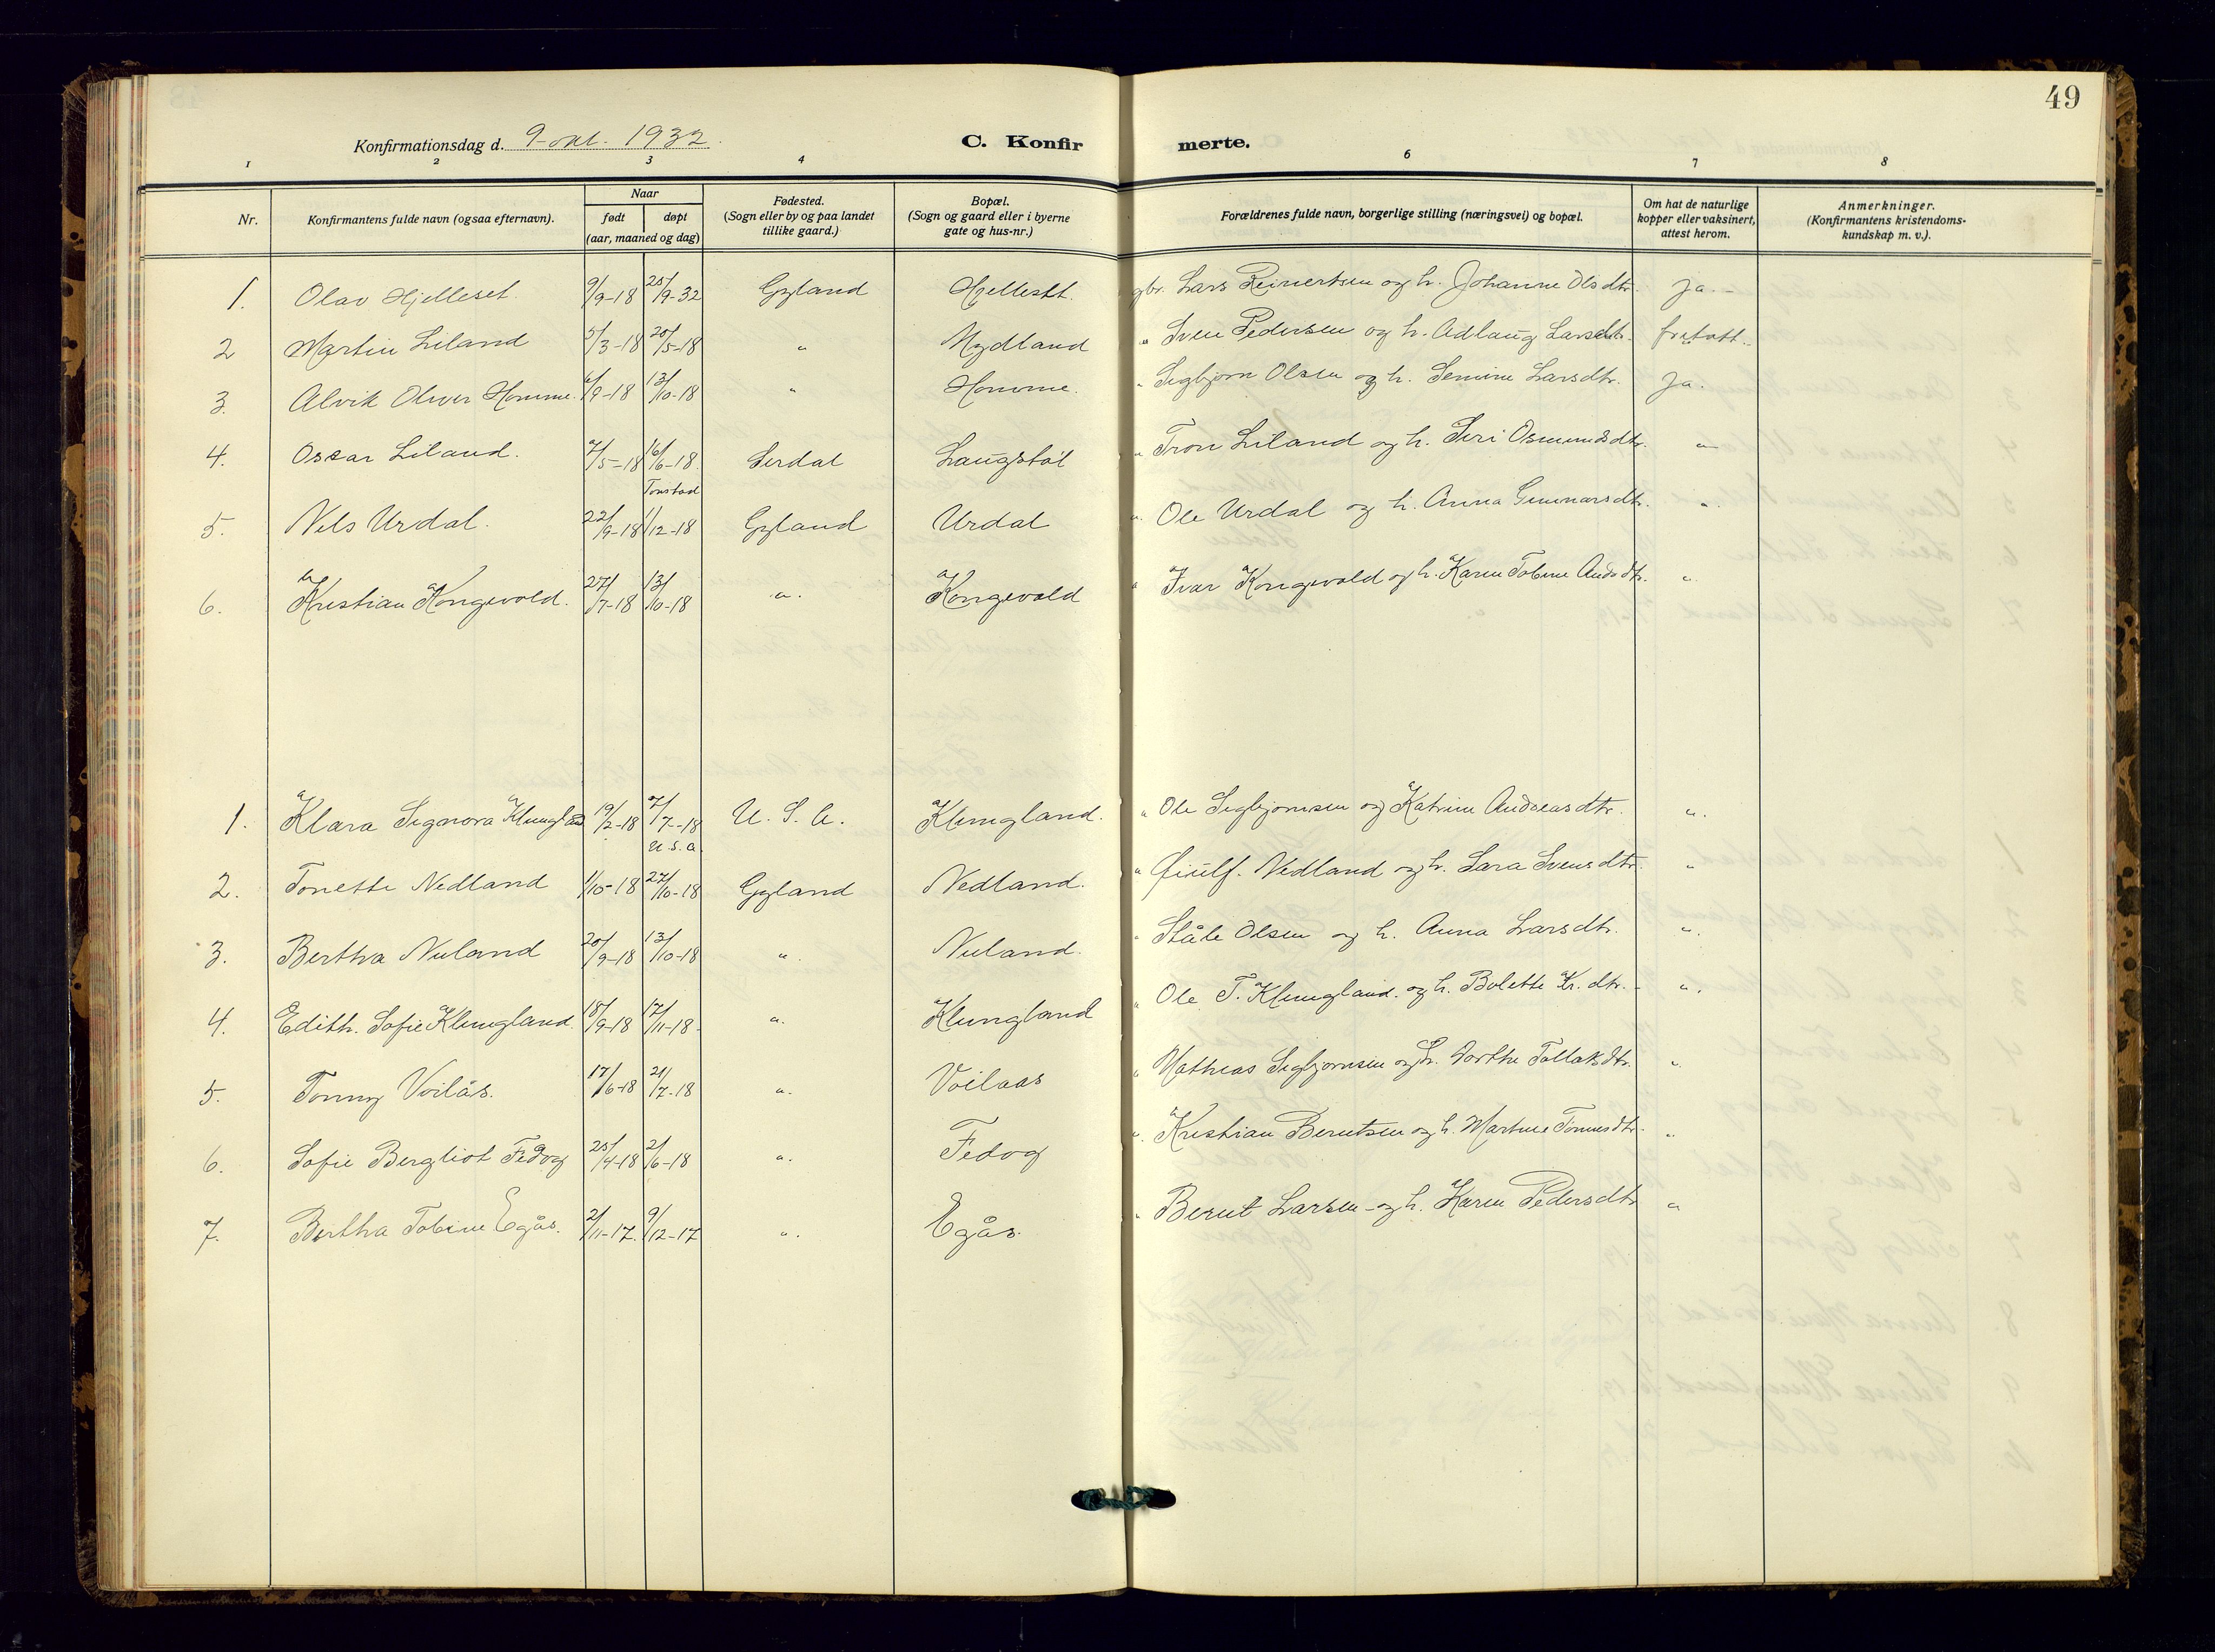 49
Konfirmationsdag d. 9-okt. 1932.
C. Konfirmerte.
1 2 3 4 5 6 7 8
Nr.
Konfirmantens fulde navn (ogsaa efternavn).
Naar
født døpt
(aar, maaned og dag)
Fødested.
(Sogn eller by og paa landet
tillike gaard.)
Bopæl.
(Sogn og gaard eller i byerne
gate og hus-nr.)
Forældrenes fulde navn, borgerlige stilling (næringsvei) og bopæl.
Om hat de naturlige
kopper eller vaksinert,
attest herom.
Anmerkninger.
(Konfirmantens kristendoms-
kundskap m. v.).
1. Olav Hjelleset. 9/9-18 25/9-32 Gyland Hjellestt. gbr. Lars Reinertsen og h. Johanne Olsdtr. Ja.-
2 Martin Liland 5/3-18 20/5-18 " Mydland " Sven Pedersen og h. Adlaug Larsdtr. fritatt.
3. Alvik Oliver Homme. 6/9-18 13/10-18 " Homme. " Sigbjørn Olsen og h. Semine Larsdtr. Ja.
4. Oscar Liland. 7/5-18 16/6-18 Serdal Laugstøl " Tron Liland og h. Siri Osmundsdtr. "
Tonstad
5. Nels Urdal. 22/9-18 1/12-18 Gyland Urdal " Ole Urdal og h. Anna Gunnarsdtr. "
6. Kristian Kongevold. 27/7-18 13/10-18 " Kongevold " Ivar Kongevold og h. Karen Tobine Andsdtr. "
1. Klara Signora Klungland 19/2-18 7/7-18 U. S. A. Klungland. " Ole Sigbjørnsen og Katrine Andreasdtr. "
U.S.A.
2. Tonette Nedland 1/10-18 27/10-18 Gyland Nedland. " Eiulf. Nedland og h. Sara Svensdtr. "
3. Bertha Nuland 20/9-18 13/10-18 " Nuland. " Ståle Olsen og h. Anna Larsdtr. "
4. Edith. Sofie Klungland. 18/9-18 17/11-18 " Klungland " Ole T. Klungland. og h. Bolette Kr. dtr. "
5. Tonny Voilås. 17/6-18 21/7-18 " Voilaas " Mathias Sigbjørnsen og h. Dorthe Tollaksdtr. "
6. Sofie Bergliot Fedog 25/4-18 2/6-18 " Fedog " Kristian Berntsen og h. Martine Tønnesdtr. "
7. Bertha Tobine Egås. 2/11-17. 9/12-17 " Egås. " Bernt Larsen og h. Karen Pedersdtr "